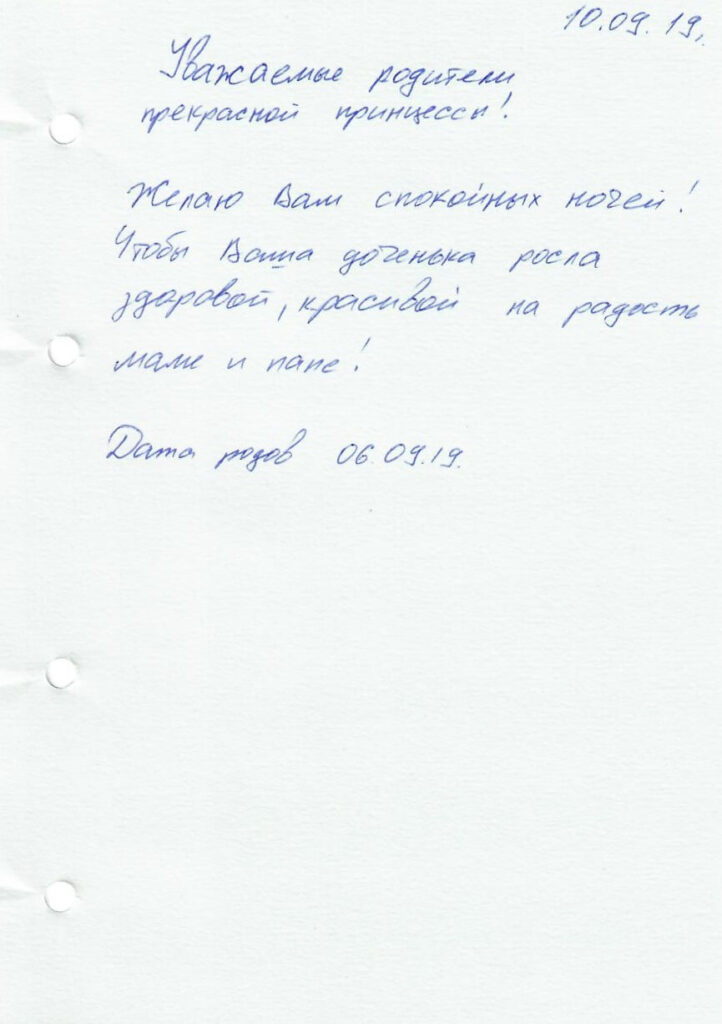 10.09.19.
Уважаемые родители
прекрасной принцессы!
Желаю Вам спокойных ночей!
Чтобы Ваша доченька росла
здоровой, красивой на радость
маме и папе!
Дата родов 06.09.19.